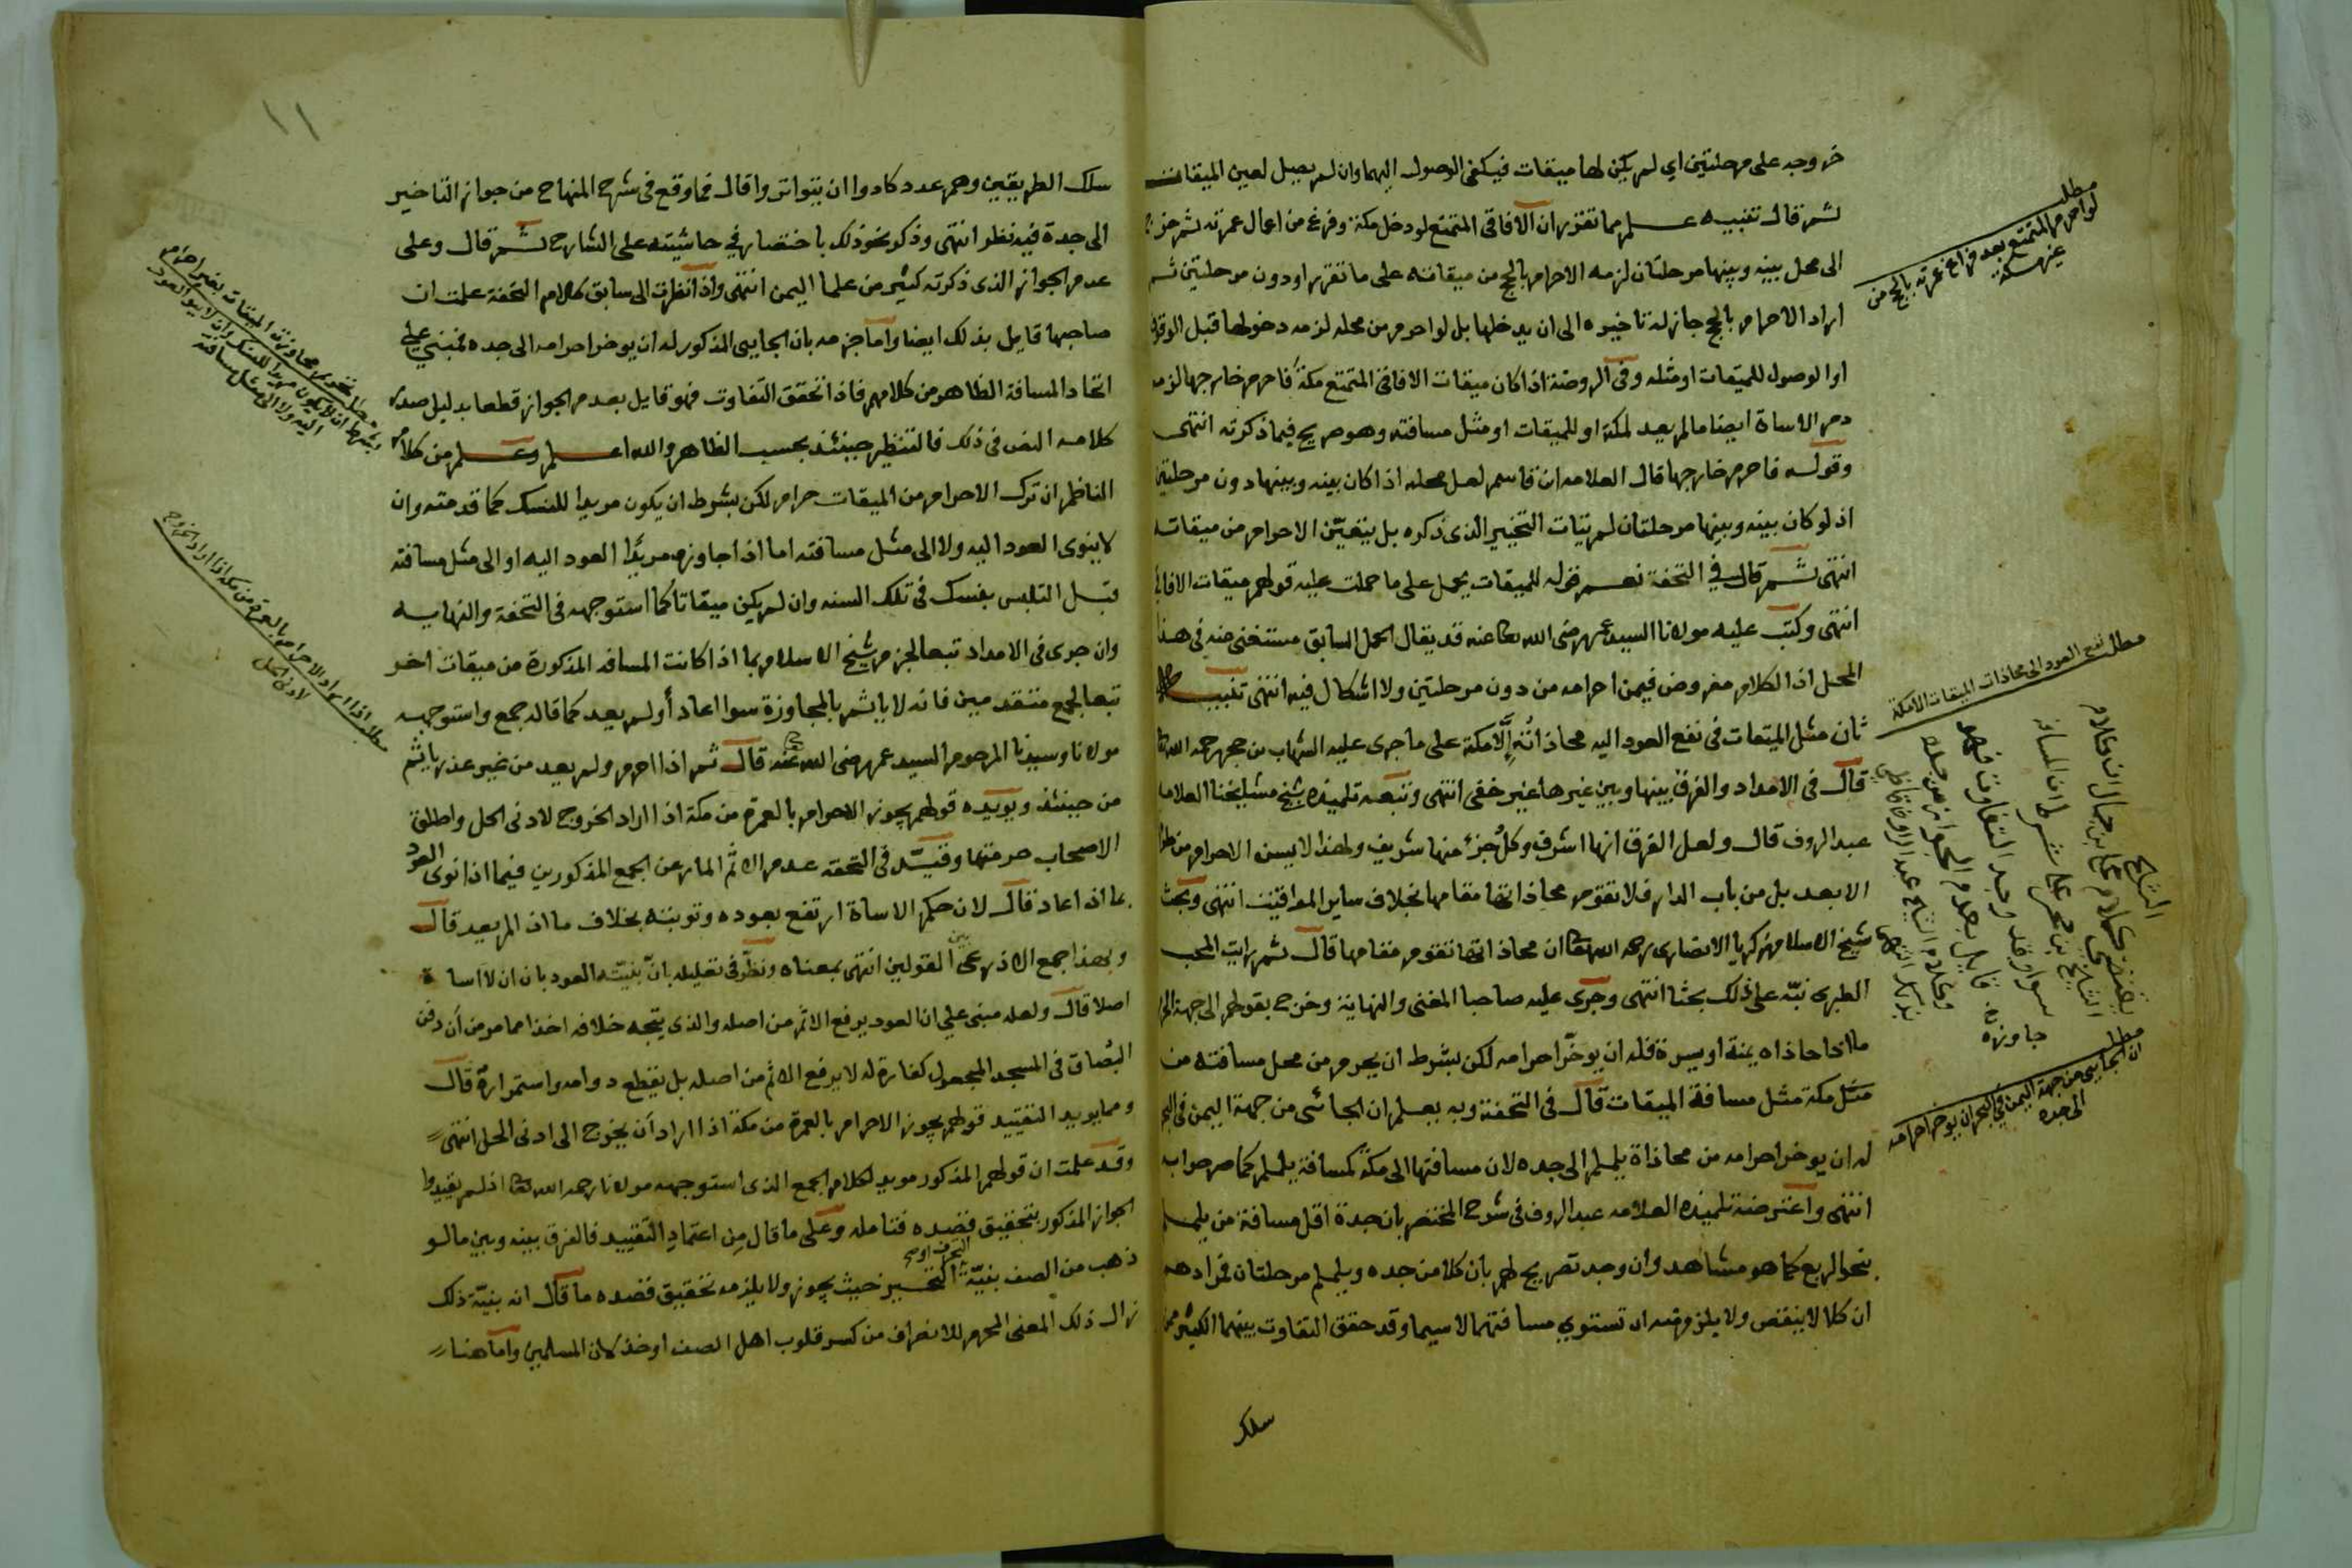 خروجه على مرحلتين اي لم يكن لها ميقات فيكفي الوصول اليهما وان لم يصل لعين الميقات
ثم قال تنبيه علم مما تقرر ان الافاقي المتمتع لو دخل مكة وفرغ من اعمال عمرته ثم خرج
الى محل بينه وبينها مرحلتان لزمه الاحرام بالحج من ميقاته على ما تقرر او دون مرحلتين ثم
اراد الاحرام بالحج جاز له تاخيره الى ان يدخلها بل لو احرم من محله لزمه دخولها قبل الوقوف
او الوصول للميقات او مثله وفي الروضة اذا كان ميقات الافاقي المتمتع مكة فاحرم خارجها لزمه
دم الاساة ايضا ما لم يعد لمكة او للميقات او مثل مسافته وهو صريح فيما ذكرته انتهى
وقوله فاحرم خارجها قال العلامه ابن قاسم لعل محله اذا كان بينه وبينها دون مرحلتين
اذ لو كان بينه وبينها مرحلتان لم يتات التخيير الذي ذكره بل يتعين الاحرام من ميقاته
انتهى ثم قال في التحفة نعم قوله للميقات يحمل على ما حملت عليه قولهم ميقات الافاقي
انتهى وكتب عليه مولانا السيد عمر رضي الله تعا عنه قد يقال الحمل السابق مستغنى عنه في هذا
المحل اذ الكلام مفروض فيمن احرامه من دون مرحلتين ولا اشكال فيه انتهى تنبيه
ثان مثل الميقات في نفع العود اليه محاذاته إلا مكة على ما جرى عليه الشهاب بن حجر رحمه الله تعا
قال في الامداد والفرق بينها وبين غيرها غير خفي انتهى وتبعه تلميذه شيخ مشايخنا العلامه
عبد الروف قال ولعل الفرق انها اشرف وكل جزء منها شريف ولهذا لا يسن الاحرام من طرفها
الابعد بل من باب الدار فلا تقوم محاذاتها مقامها بخلاف ساير المواقيت انتهى وبحث
شيخ الاسلام زكريا الانصاري رحمه الله تعا ان محاذاتها تقوم مقامها قال ثم رايت المحب
الطبري نبه على ذلك بحثا انتهى وجرى عليه صاحبا المغني والنهاية وخرج بقولهم الى جهة الحرم
ما اذا حاذاه يمنة او يسرة فله ان يوخر احرامه لكن بشرط ان يحرم من محل مسافته من
مكة مثل مسافة الميقات قال في التحفة وبه يعلم ان الجائي من جهة اليمن في البحر
له ان يوخر احرامه من محاذاة يلملم الى جده لان مسافتها الى مكة كمسافة يلملم كما صرحوا به
انتهى واعترضه تلميذه العلامه عبد الروف في شرح المختصر بان جدة اقل مسافة من يلملم
بنحو الربع كما هو مشاهد وان وجد تصريح لهم بان كلا من جده ويلملم مرحلتان فمرادهم
ان كلا لا ينقص ولا يلزم منه ان تستوي مسافتهما لا سيما وقد حقق التفاوت بينهما الكثير ممن
سلك
مطلب
لو احرم المتمتع بعد فراغ عمرته بالحج من
غير مكة
مطلب نفع العود الى محاذات الميقات الا مكة
مطلب
ان الجايي من جهة اليمن في البحر ان يوخر احرامه
الى جده
١١
سلك الطريقين وهم عدد كادوا ان يتواتروا قال فما وقع في شرح المنهاج من جواز التاخير
الى جدة فيه نظر انتهى وذكر نحو ذلك باختصار في حاشيته على الشارح ثم قال وعلى
عدم الجواز الذي ذكرته كثير من علما اليمن انتهى واذا نظرت الى سابق كلام التحفة علمت ان
صاحبها قايل بذلك ايضا واما جزمه بان الجايي المذكور له ان يوخر احرامه الى جده فمبني على
اتحاد المسافة الظاهر من كلامهم فاذا تحقق التفاوت فهو قايل بعدم الجواز قطعا بدليل صدر
كلامه النص في ذلك فالتنظير حينئذ بحسب الظاهر والله اعلم وعلم من كلام
الناظم ان ترك الاحرام من الميقات حرام لكن بشرط ان يكون مريدا للنسك كما قدمته وان
لا ينوي العود اليه ولا الى مثل مسافته اما اذا جاوزه مريدا العود اليه او الى مثل مسافته
قبل التلبس بنسك في تلك السنه وان لم يكن ميقاتا كما استوجهه في التحفة والنهايه
وان جرى في الامداد تبعا لجزم شيخ الاسلام بما اذا كانت المسافه المذكورة من ميقات اخر
تبعا لجمع متقدمين فانه لا ياثم بالمجاوزة سوا اعاد أو لم يعد كما قاله جمع واستوجهه
مولانا وسيدنا المرحوم السيد عمر رضي الله تعا عنه قال ثم اذا احرم ولم يعد من غير عذر ياثم
من حينئذ ويويده قولهم يجوز الاحرام بالعمرة من مكة اذا اراد الخروج لادنى الحل واطلق
الاصحاب حرمتها وقيد في التحفه عدم الاثم المار عن الجمع المذكورين فيما اذا نوى العود
بما اذا عاد قال لان حكم الاساة ارتفع بعوده وتوبته بخلاف ما اذا لم يعد قال
وبهذا جمع الاذرعي بين القولين انتهى بمعناه ونظر في تعليله بان بنيته العود بان ان لا اساة
اصلا قال ولعله مبني على ان العود يرفع الاثم من اصله والذي يتجه خلافه اخذا مما مر من أن دفن
البصاق في المسجد المجعول كفارة له لا يرفع الاثم من اصله بل يقطع دوامه واستمراره قال
ومما يويد التقييد قولهم يجوز الاحرام بالعمرة من مكة اذا اراد أن يخرج الى ادنى الحل انتهى
وقد علمت ان قولهم المذكور مويد لكلام الجمع الذي استوجهه مولانا رحمه الله تعا اذ لم يقيدوا
الجواز المذكور بتحقيق قصده فتامله وعلى ما قال من اعتماد التقييد فالفرق بينه وبين ما لو
ذهب من الصف بنية التحرف او التحيز حيث يجوز ولا يلزمه تحقيق قصده ما قال انه بنية ذلك
زال ذلك المعنى المحرم للانصراف من كسر قلوب اهل الصف او خذلان المسلمين واما هنا
مطلب تحريم مجاوزة الميقات بغير احرام
اليه ولا الى مثل مسافته
مطلب اذا اراد الاحرام بالعمرة من مكة اذا اراد الخروج
لادنى الحل